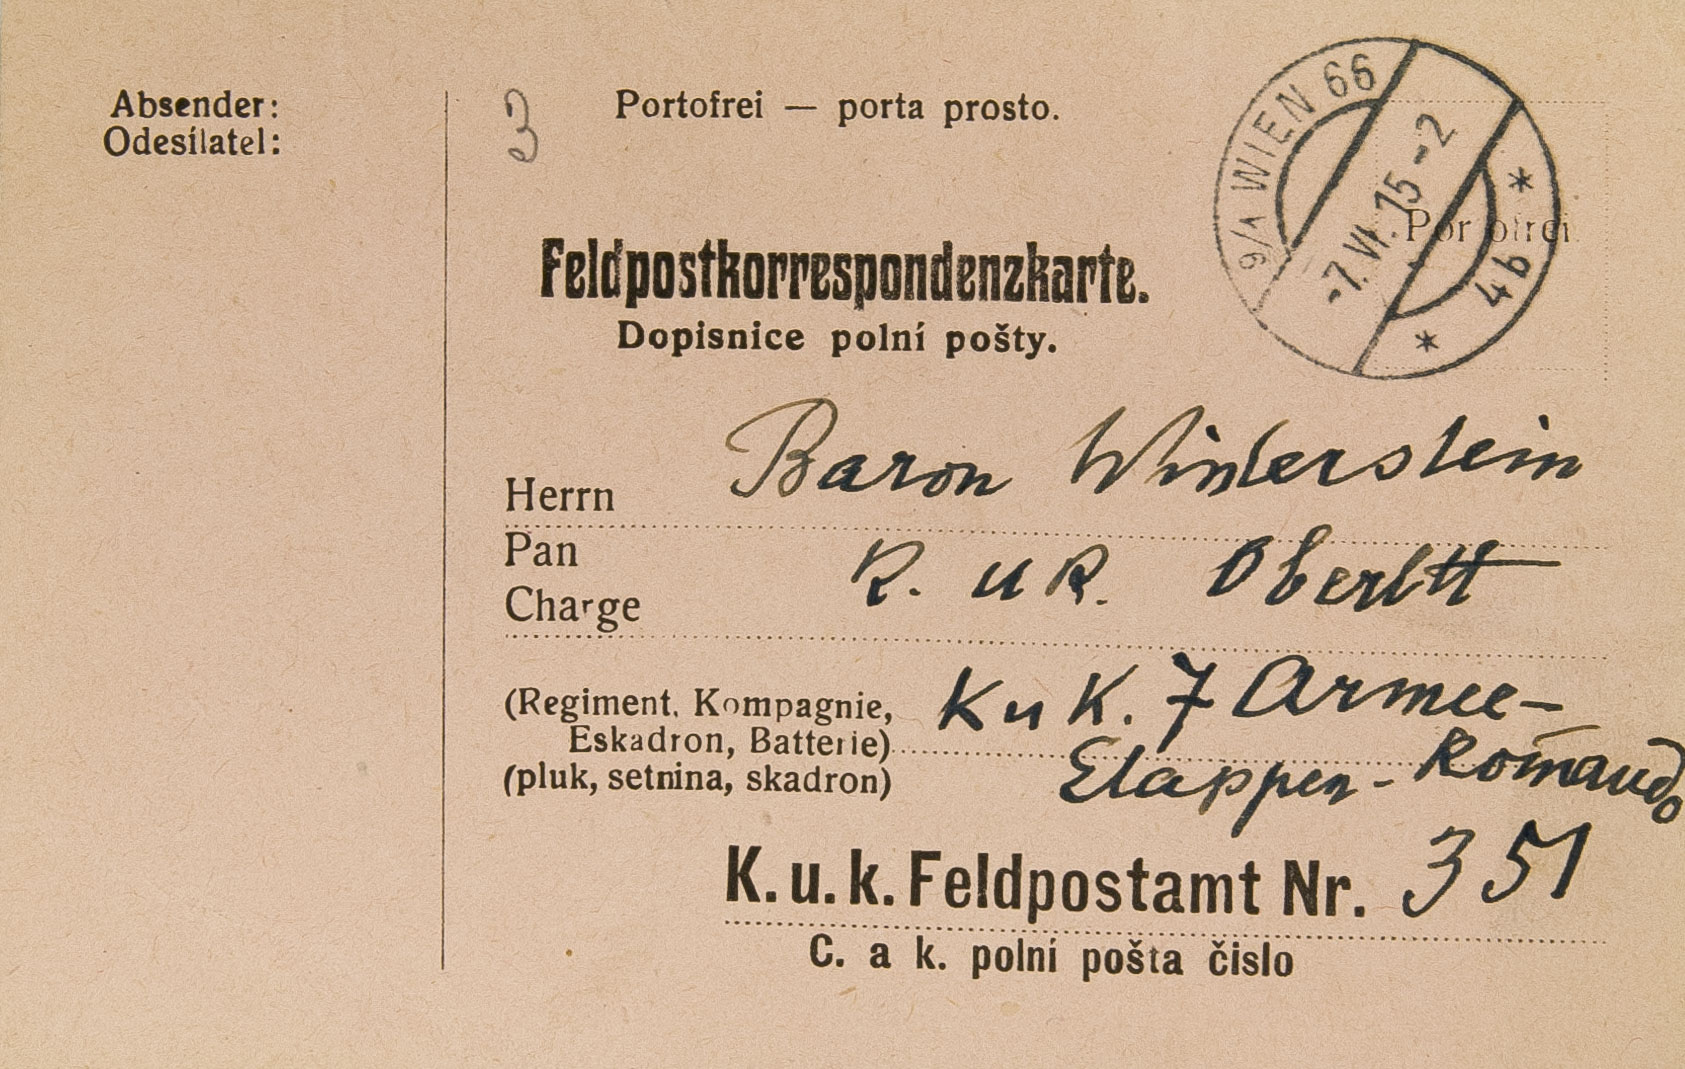 Absender:
Odesílatel:
3
Portofrei — porta prosto.
9/1 WIEN 66
-7.VI.15-2
* 4b *
Portofrei
Feldpostkorrespondenzkarte.
Dopisnice polní pošty.
Herrn Baron Winterstein
Pan
Charge K. u K. Oberltt
(Regiment, Kompagnie, K u K. 7 Armee-
Eskadron, Batterie)
(pluk, setnina, skadron) Etappen-Komando
K. u. k. Feldpostamt Nr. 351
C. a k. polní pošta čislo